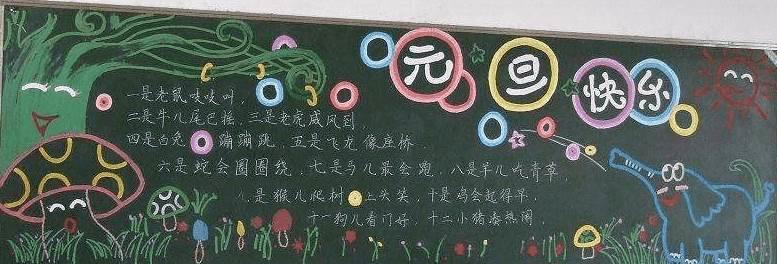 元旦快乐
一是老鼠吱吱叫，
二是牛儿尾巴摇，三是老虎威风到，
四是白兔蹦蹦跳，五是飞龙像座桥，
六是蛇会圈圈绕，七是马儿最会跑，八是羊儿吃青草，
九是猴儿爬树上头笑，十是鸡会起得早，
十一狗儿看门好，十二小猪凑热闹，